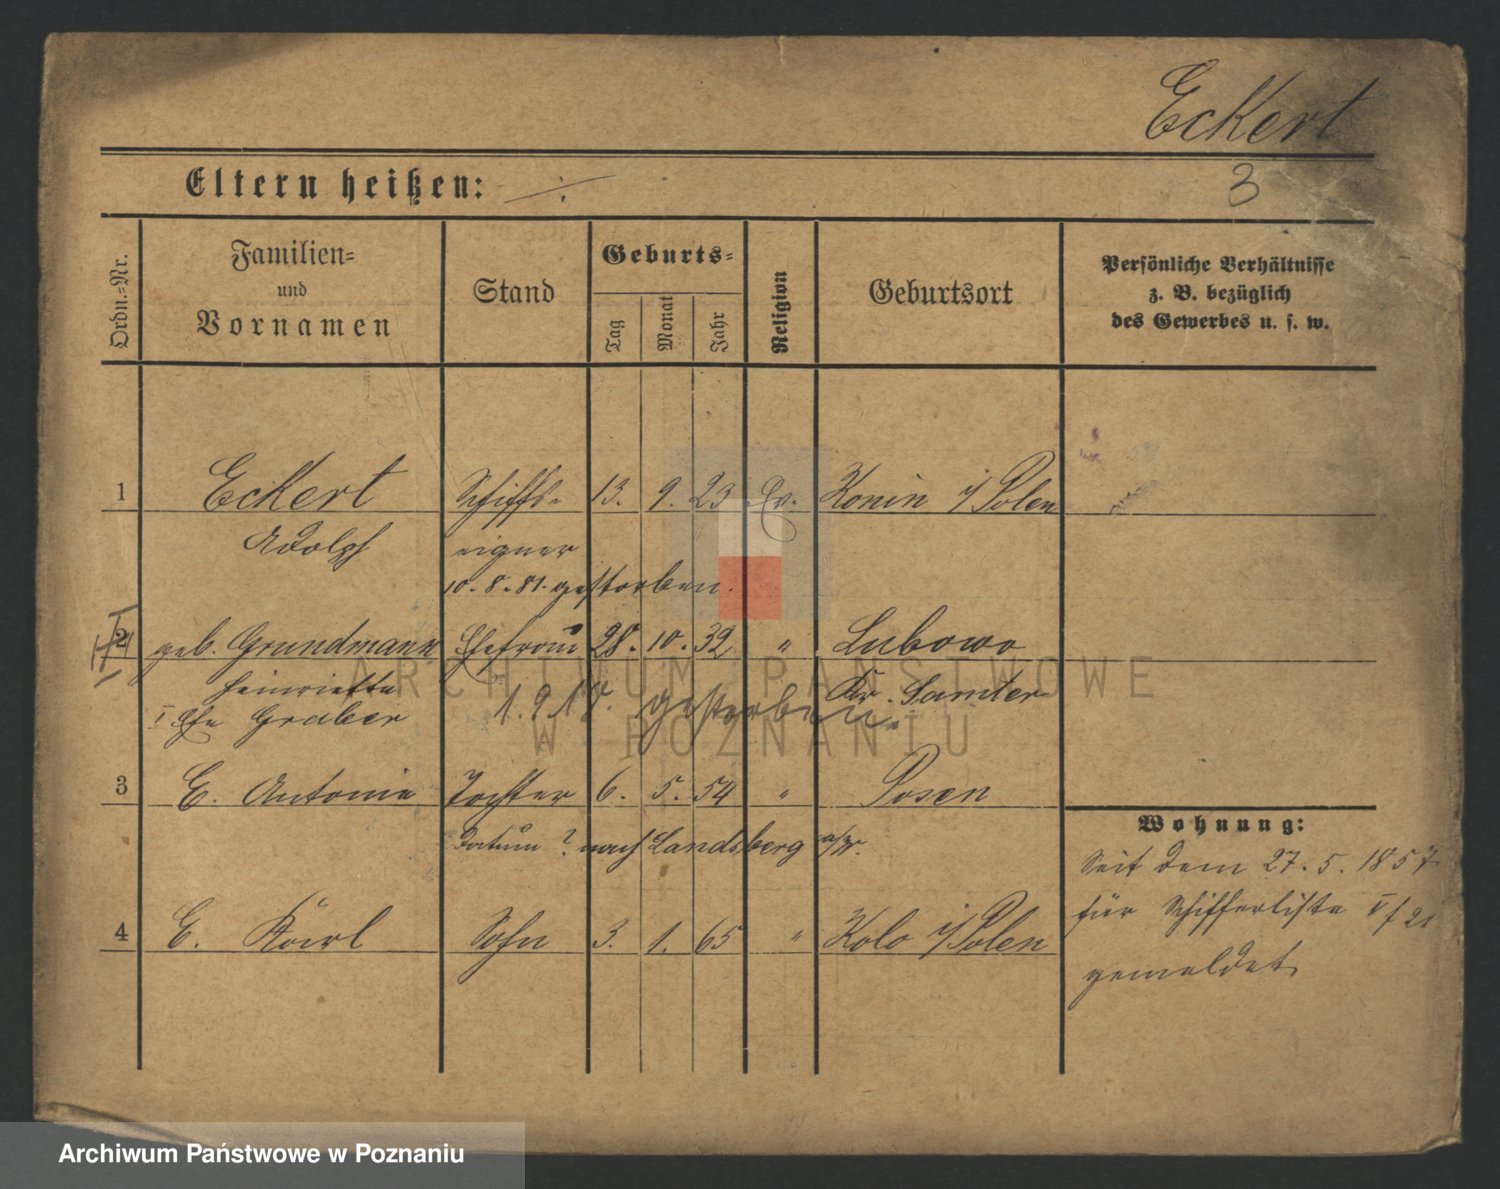 Eckert
3
Eltern heißen: ./.
Ordn.-Nr.
Familien-
und
Vornamen
Stand
Geburts-
Tag
Monat
Jahr
Religion
Geburtsort
Persönliche Verhältnisse
z. B. bezüglich
des Gewerbes u. s. w.
1 Eckert Schiffs- 13. 9. 23 Ev. Konin i/Polen
Adolph eigner
10.8.81. gestorben.
2 geb. Grundmann Ehefrau 28. 10. 32 " Lubowo
Heinriette Kr. Samter
I Ehe Graber 1.9.18. gestorben.
3 E. Antonie Tochter 6. 5. 54 " Posen
Datum? nach Landsberg a/W.
4 E. Karl Sohn 3. 1. 65 " Kolo i/Polen
Wohnung:
Seit dem 27.5.1857
für Schifferliste V/21
gemeldet
ARCHIWUM PAŃSTWOWE
W POZNANIU
Archiwum Państwowe w Poznaniu